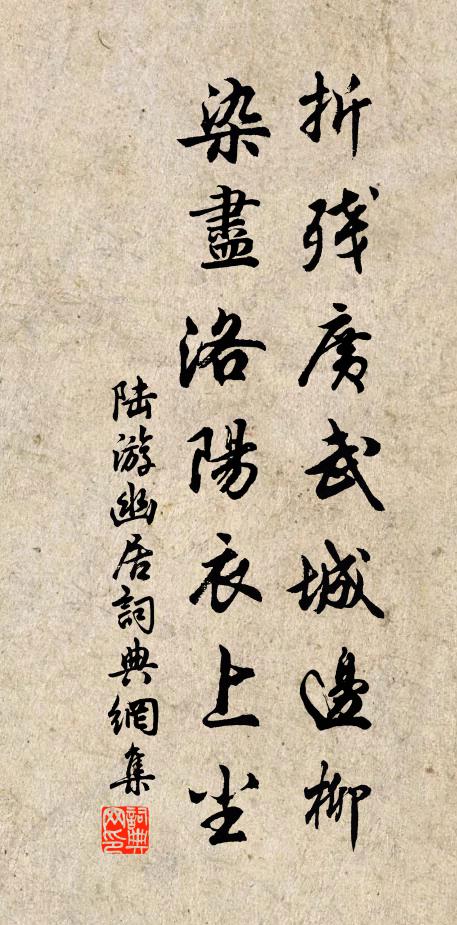 折残廣武城邊柳
染盡洛陽衣上尘
陆游幽居詞典網集
詞典網印